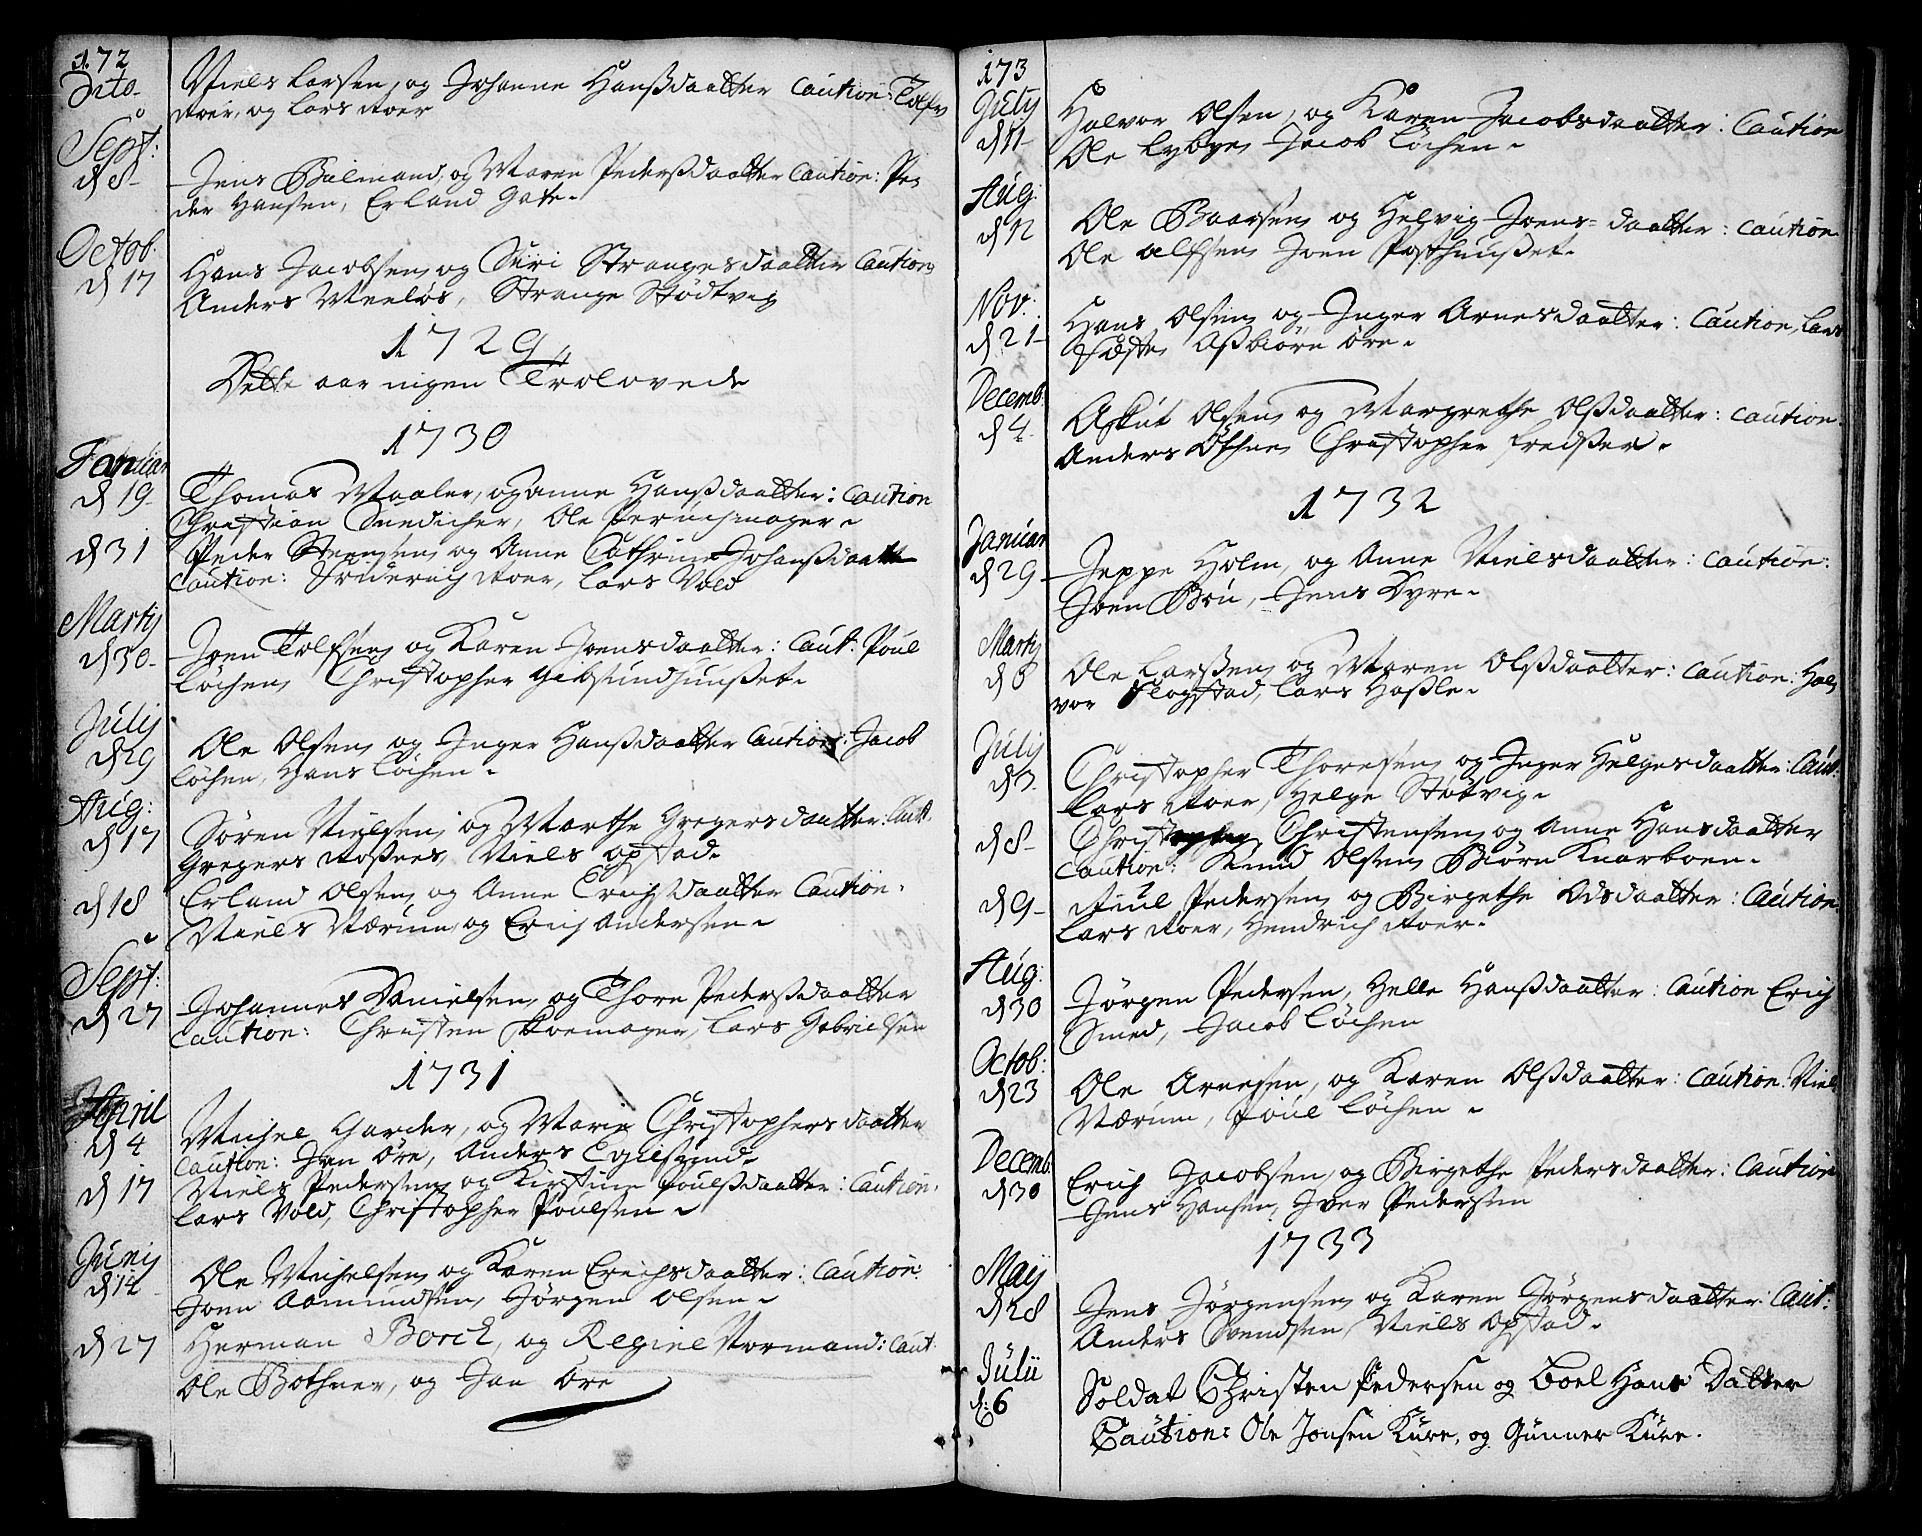 172
Dito Niels Larsen, og Johanne Hanßdaatter Caution: Tolfv
Roer, og Lars Roer
Sept:
d 8 Jens Bulmand, og Maren Pederßdaatter Caution: Pe-
der Hansen, Erland Gate.
Octob:
d 17 Hans Jacobsen og Siri Strangesdaatter Caution
Anders Meeløs, Strange Stødtvig
1729
Dette aar ingen Trolovede
1730
Januar
d 19 Thomas Maaler, og Anne Hanßdaatter: Caution
Christian Snedicher, Ole Peruchmager.
d 31 Peder Steensen og Anne Cathrine Johanßdaatter
Caution: Friderich Roer, Lars Vold
Martij
d 30 Joen Tolfsen og Karen Joensdaatter: Caut: Poul
Løchen, Christopher Gibsundhuußet.
Julij
d 29 Ole Olsen og Inger Hanßdaatter Caution: Jacob
Løchen, Hans Løchen.
Aug:
d 17 Søren Nielsen og Marthe Gregersdaatter: Caut:
Gregers Roßnes, Niels Opstad.
d 18 Erland Olsen og Anne Erichsdaatter Caution.
Niels Værum, og Erich Andersen.
Sept:
d 27 Johannes Danielsen, og Thore Pederßdaatter
Caution: Christen Skoemager, Lars Gabrielsen
1731
April
d 4 Michel Garder, og Marie Christophersdaatter
Caution: Jan Øre, Anders
d 17 Niels Pedersen og Kirstine Poulßdaatter: Caution.
Lars Vold, Christopher Poulsen.
Junij
d 14 Ole Michelsen og Karen Erichsdaatter: Caution:
Joen Aamundsen, Jørgen Olsen.
d 27 Herman Borch, og Regine Normand: Caut:
Ole Bothner, og Jan Øre
173
July
d 11 Halvor Olsen, og Karen Jacobsdaatter: Caution
Ole Lybye, Jacob Løchen.
Aug:
d 12 Ole Baarsen og Helvig Joens-daatter: Caution
Ole Alfsen, Joen Posthuußet.
Nov:
d 21 Hans Olsen og Inger Arnesdaatter: Caution, Lars
Næste, Aßbiørn Øre.
Decemb:
d 4 Askut Olsen og Margrethe Olßdaatter: Caution.
Anders Christopher
1732
Januar
d 29 Jeppe Holm, og Anne Nielsdaatter: Caution:
Joen Bøu, Jens Dyre.
Martij
d 8 Ole Larßen og Maren Olßdaatter: Caution: Hal-
vor Slogstad, Lars Haßle.
Julij
d 3 Christopher Thoresen og Inger Helgesdaatter: Caut:
Lars Roer, Helge Støtvig.
d 8 Christopher Christensen og Anne Hansdaatter
Caution: Knud Olsen Biørn Knarboen.
d 9 Juul Pedersen og Birgethe Odsdaatter: Caution
Lars Roer, Hendrich Roer.
Aug:
d 30 Jørgen Pedersen, Helle Hanßdaatter: Caution Erich
Smed, Jacob Løchen
Octob:
d 23 Ole Arnesen, og Karen Olßdaatter: Caution: Niels
Værum, Poul Løchen.
Decemb:
d 30 Erich Jacobsen, og Birgethe Pedersdaatter: Caution
Jens Hansen, Iver Pedersen
1733
Maij
d 28 Jens Jørgensen og Karen Jørgensdaatter: Caut:
Anders Svendsen, Niels Opstad.
Julii
d: 6 Soldat Christen Pedersen og Boel Hans Datter
Caution: Ole Jonsen Kure, og Gunner Kure.